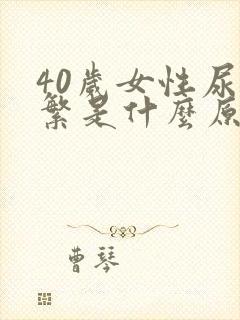 40歲女性尿
繁是什麼原
曹琴